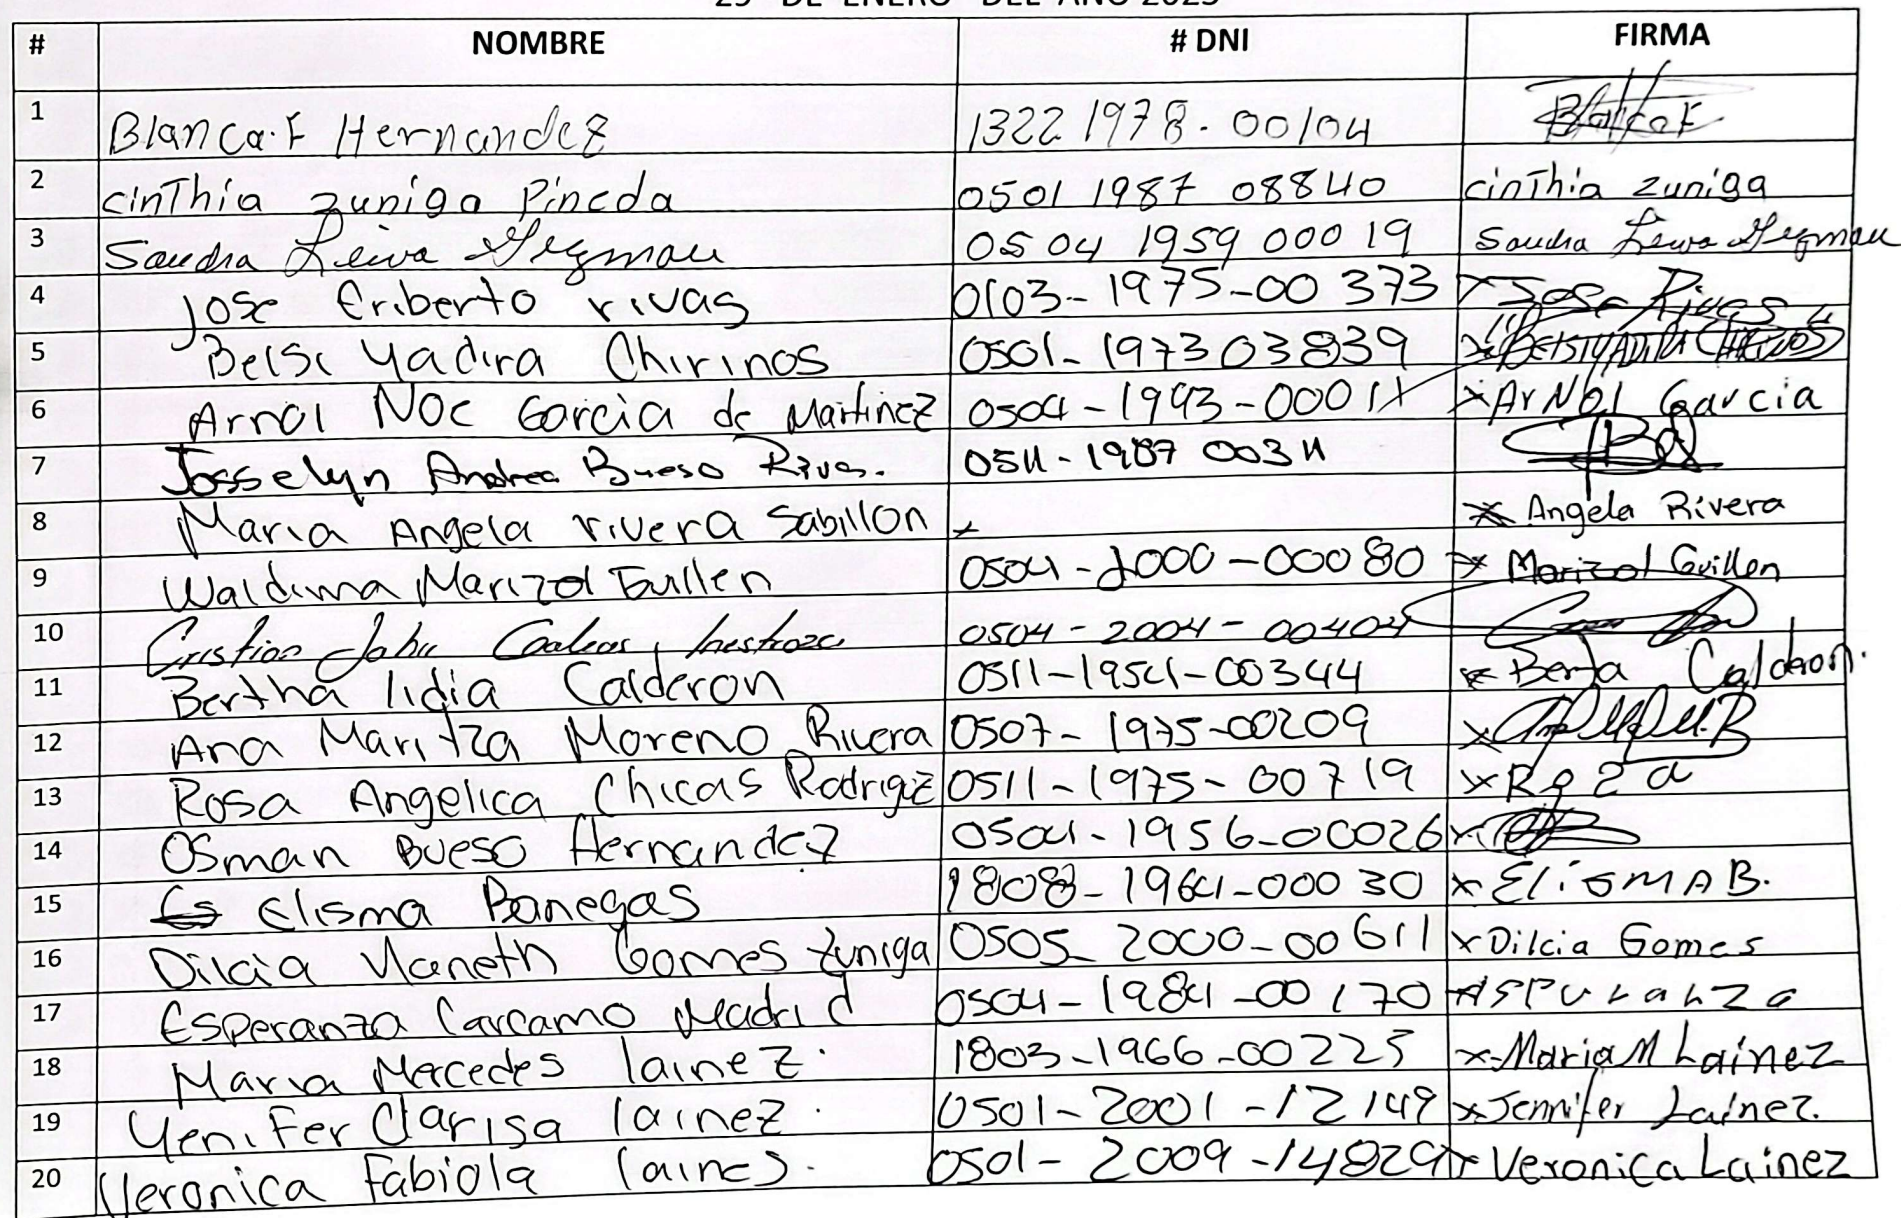 DE ENERO DEL AÑO 2025
# NOMBRE # DNI FIRMA
1 Blanca.F Hernandez 1322 1978. 00104 Blanca F
2 cinThia zuniga Pineda 0501 1987 08840 cinthia zuniga
3 Sandra Leiva 0504 1959 00019 Sandra Leiva
4 Jose Eriberto rivas 0103-1975-00373 x Jose Rivas
5 Belsi Yadira Chirinos 0501-1973 03839 x BELSI YADIRA CHIRINOS
6 Arnol Noe Garcia de Martinez 0504-1993-0001 x ArNOl Garcia
7 Josselyn Andrea Bueso Rivas. 0511-1987
8 Maria Angela rivera Sabillon x x Angela Rivera
9 Marizol Guillen 0504-2000-00080 x Marizol Guillen
10 Cristian 0504-2004-00404
11 Bertha lidia Calderon 0511-1954-00344 x Berta Calderon.
12 Ana Maritza Moreno Rivera 0507-1975-00209 x
13 Rosa Angelica Chicas Rodrigez 0511-1975-00719 x Roza
14 Osman Bueso Hernandez 0504-1956-00026 x
15 Elisma Banegas 1808-1964-00030 x EliSMA B.
16 Dilcia Yaneth Gomes zuniga 0505-2000-00611 x Dilcia Gomes
17 Esperanza Carcamo Madrid 0504-1984-00170 x
18 Maria Mercedes lainez. 1803-1966-00223 x Maria M Lainez
19 Yenifer Clarisa lainez. 0501-2001-12149 x Jennifer Lainez.
20 Veronica Fabiola laines. 0501-2009-14829 x Veronica Lainez